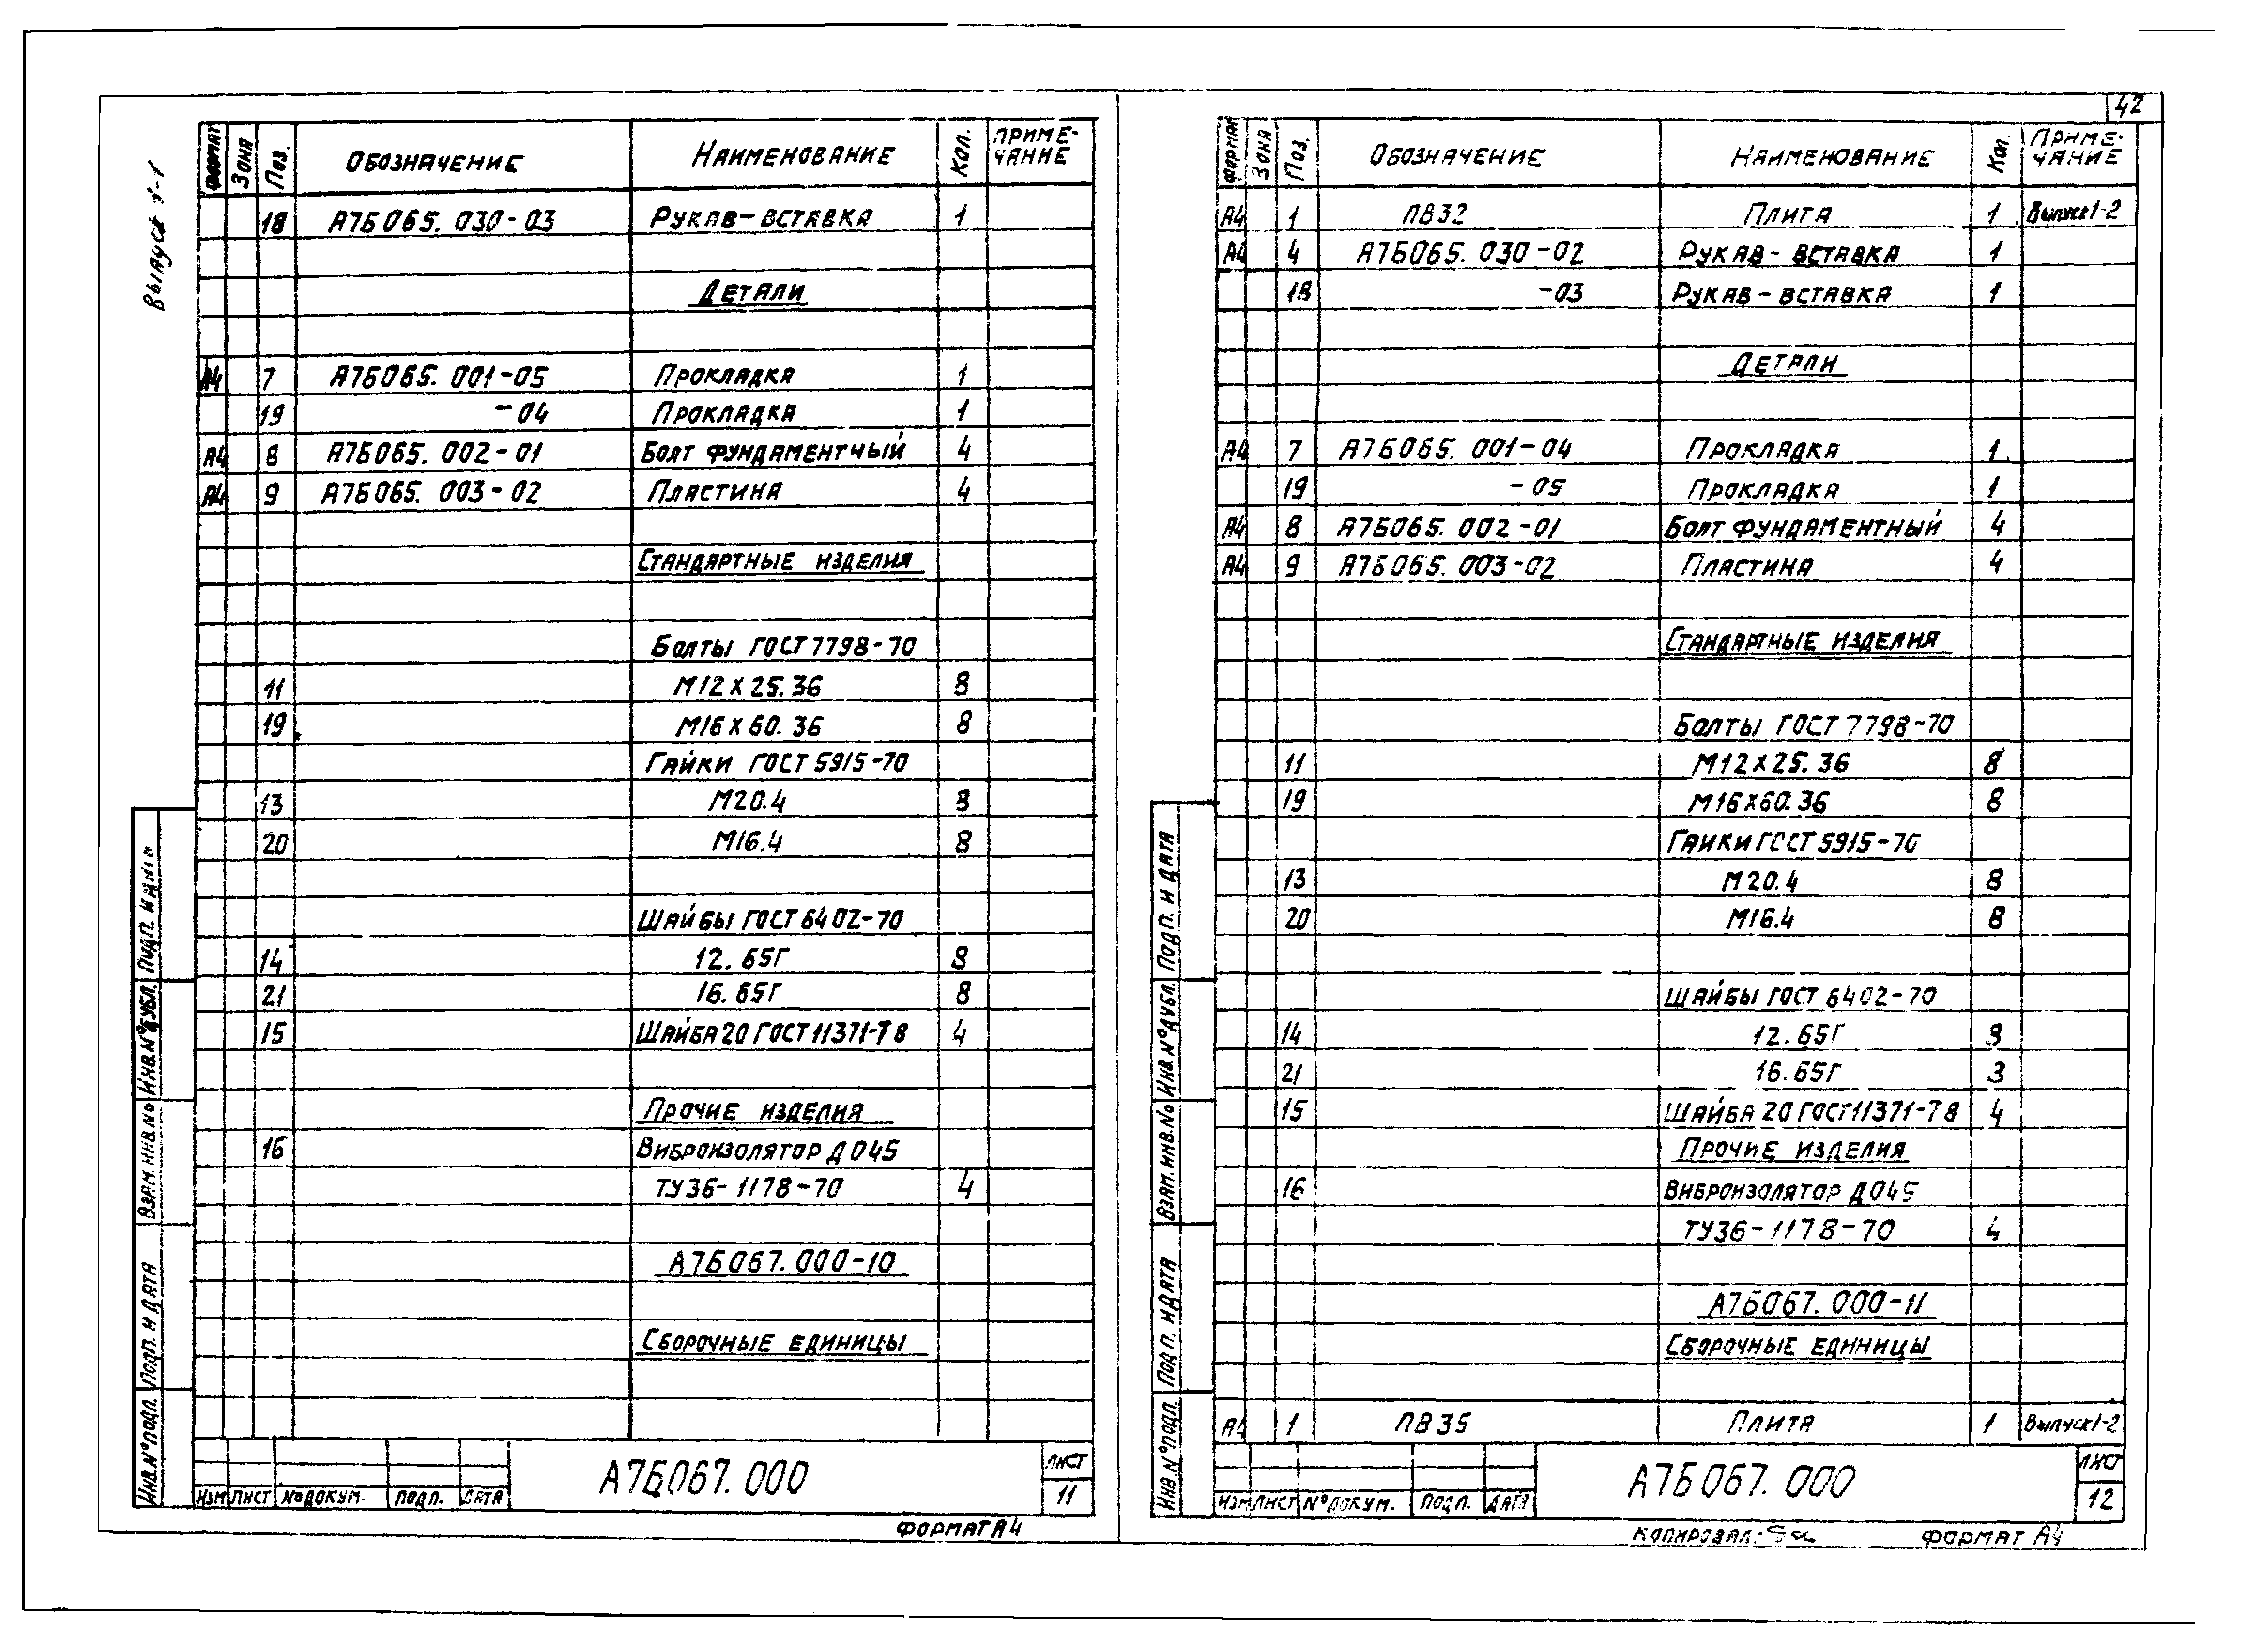 42
Выпуск 1-1
Формат Зона Поз. Обозначение Наименование Кол. Приме-чание
18 А7Б065.030-03 Рукав-вставка 1
Детали
А4 7 А7Б065.001-05 Прокладка 1
19 -04 Прокладка 1
А4 8 А7Б065.002-01 Болт фундаментный 4
А4 9 А7Б065.003-02 Пластина 4
Стандартные изделия
Болты ГОСТ 7798-70
11 М12×25.36 8
19 М16×60.36 8
Гайки ГОСТ 5915-70
13 М20.4 8
20 М16.4 8
Шайбы ГОСТ 6402-70
14 12.65Г 8
21 16.65Г 8
15 Шайба 20 ГОСТ 11371-78 4
Прочие изделия
16 Виброизолятор Д045
ТУ36-1178-70 4
А7Б067.000-10
Сборочные единицы
Инв.№подл. Подп. и дата Взам.инв.№ Инв.№дубл. Подп. и
Изм Лист №докум. Подп. Дата
А7Б067.000
Лист
11
Формат А4
Формат Зона Поз. Обозначение Наименование Кол. Приме-чание
А4 1 ПВ32 Плита 1 Выпуск 1-2
А4 4 А7Б065.030-02 Рукав-вставка 1
18 -03 Рукав-вставка 1
Детали
А4 7 А7Б065.001-04 Прокладка 1
19 -05 Прокладка 1
А4 8 А7Б065.002-01 Болт фундаментный 4
А4 9 А7Б065.003-02 Пластина 4
Стандартные изделия
Болты ГОСТ 7798-70
11 М12×25.36 8
19 М16×60.36 8
Гайки ГОСТ 5915-70
13 М20.4 8
20 М16.4 8
Шайбы ГОСТ 6402-70
14 12.65Г 8
21 16.65Г 8
15 Шайба 20 ГОСТ 11371-78 4
Прочие изделия
16 Виброизолятор Д045
ТУ36-1178-70 4
А7Б067.000-11
Сборочные единицы
А4 1 ПВ35 Плита 1 Выпуск 1-2
Инв.№подл. Подп. и дата Взам.инв.№ Инв.№дубл. Подп. и дата
Изм Лист №докум. Подп. Дата
А7Б067.000
Лист
12
Копировал: Формат А4